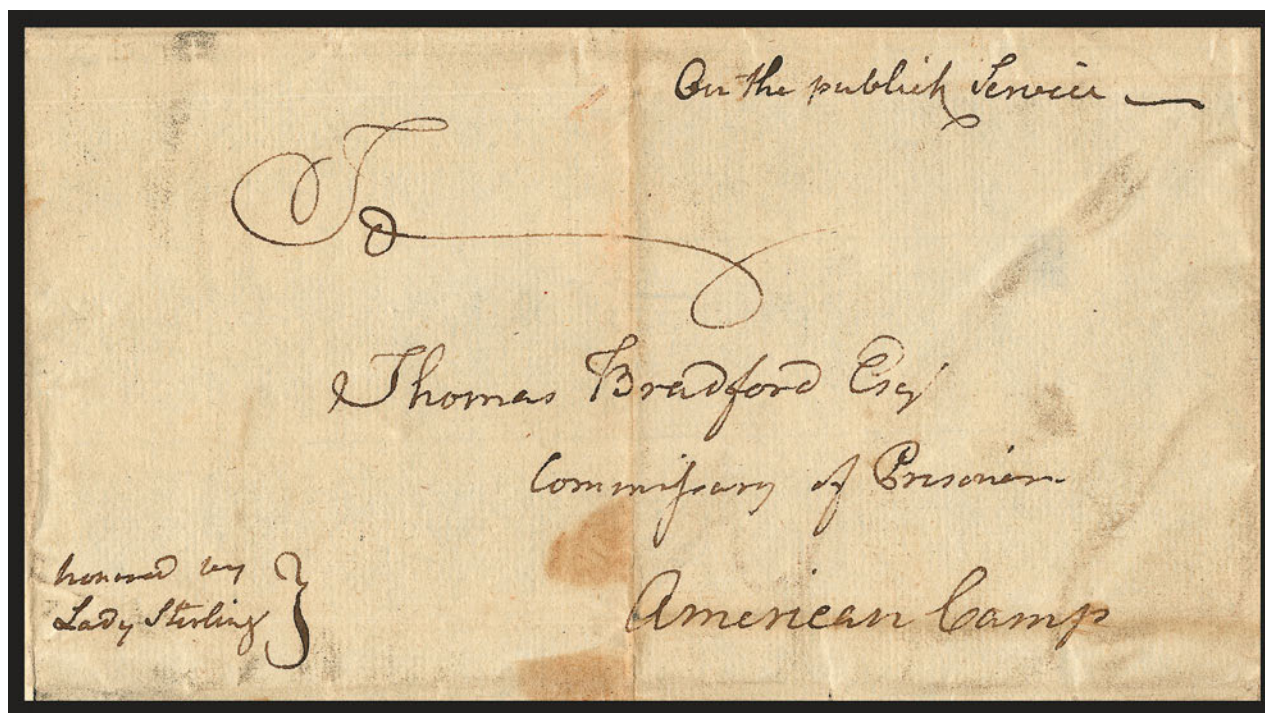 On the publick Service
To
Thomas Bradford Esqr
Commissary of Prisoners
American Camp
honored by
Lady Sterling